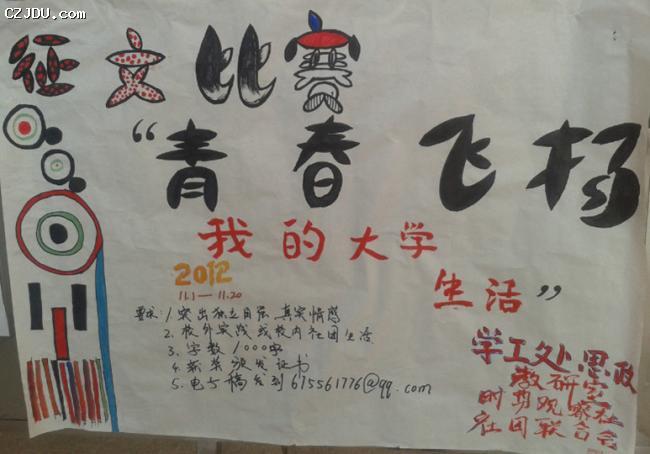 CZJDU.COM
征文比赛
“青春飞扬
我的大学
生活”
2012
11.1—11.20
要求：1. 突出独立自强 真实情感
2. 校外实践或校内社团生活
3. 字数1000字
4. 获奖颁发证书
5. 电子稿发到675561776@qq.com
学工处思政
教研室
时势观察社
社团联合会